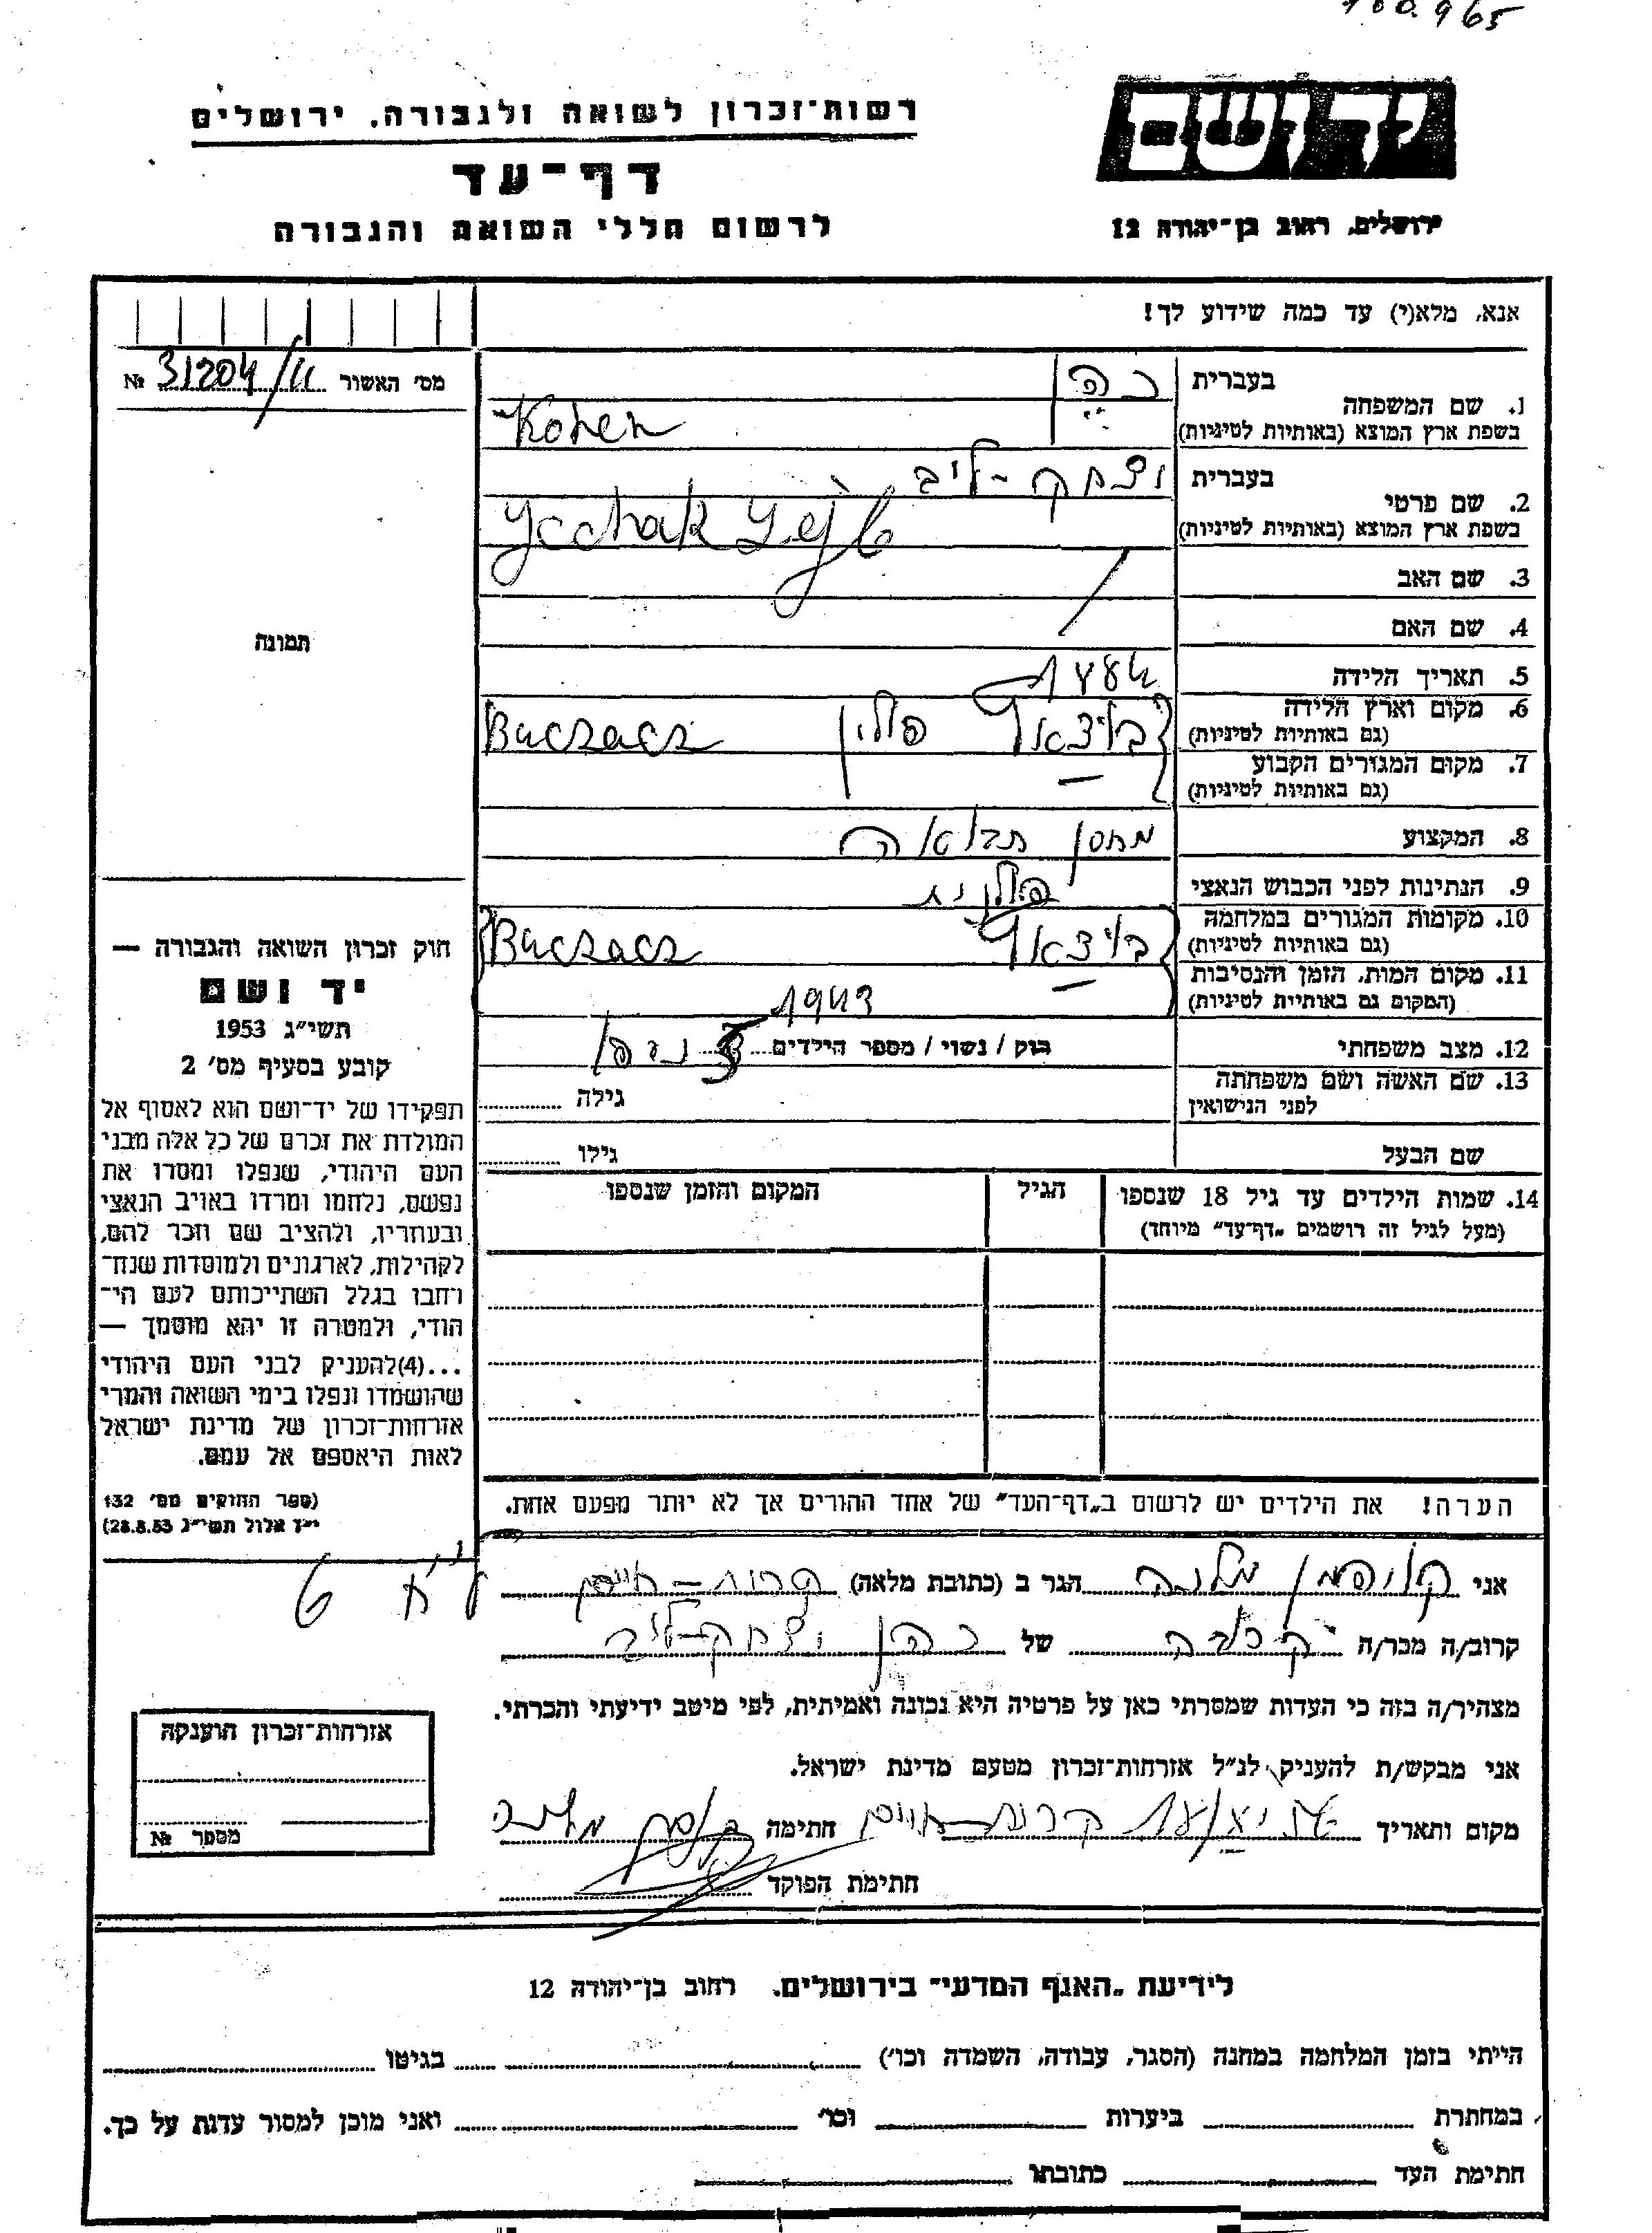 965
רשות־זכרון לשואה ולגבורה, ירושלים
יד ושם
דף־עד
לרשום חללי השואה והגבורה
ירושלים, רחוב בן־יהודה 12
אנא, מלא(י) עד כמה שידוע לך!
מס׳ האשור № 31204/11
1. שם המשפחה
בעברית כהן
בשפת ארץ המוצא (באותיות לטיניות) Kohen
2. שם פרטי
בעברית יצחק-לייב
בשפת ארץ המוצא (באותיות לטיניות) Ycchak Lejb
3. שם האב
4. שם האם
תמונה
5. תאריך הלידה
6. מקום וארץ הלידה
(גם באותיות לטיניות) פולין Buczacz
7. מקום המגורים הקבוע
(גם באותיות לטיניות)
8. המקצוע מחסן תבואה
9. הנתינות לפני הכבוש הנאצי פולנית
10. מקומות המגורים במלחמה
(גם באותיות לטיניות) Buczacz
11. מקום המות, הזמן והנסיבות
(המקום גם באותיות לטיניות) 1943
12. מצב משפחתי רוק / נשוי / מספר הילדים
13. שם האשה ושם משפחתה
לפני הנישואין גילה
שם הבעל גילו
14. שמות הילדים עד גיל 18 שנספו הגיל המקום והזמן שנספו
(מעל לגיל זה רושמים „דף־עד״ מיוחד)
הערה! את הילדים יש לרשום ב„דף־העד״ של אחד ההורים אך לא יותר מפעם אחת.
חוק זכרון השואה והגבורה —
יד ושם
תשי״ג 1953
קובע בסעיף מס׳ 2
תפקידו של יד־ושם הוא לאסוף אל
המולדת את זכרם של כל אלה מבני
העם היהודי, שנפלו ומסרו את
נפשם, נלחמו ומרדו באויב הנאצי
ובעוזריו, ולהציב שם וזכר להם,
לקהילות, לארגונים ולמוסדות שנח־
רחבו בגלל השתייכותם לעם הי־
הודי, ולמטרה זו יהא מוסמך —
...(4)להעניק לבני העם היהודי
שהושמדו ונפלו בימי השואה והמרי
אזרחות־זכרון של מדינת ישראל
לאות היאספם אל עמם.
(ספר החוקים מס׳ 132
י״ז אלול תשי״ג 28.8.53)
אני קויפמן מלכה הגר ב (כתובת מלאה) קרית-חיים
קרוב/ה מכר/ה קרובה של כהן יצחק-לייב
מצהיר/ה בזה כי העדות שמסרתי כאן על פרטיה היא נכונה ואמיתית, לפי מיטב ידיעתי והכרתי.
אני מבקש/ת להעניק לנ״ל אזרחות־זכרון מטעם מדינת ישראל.
מקום ותאריך קרית-חיים חתימה קויפמן מלכה
חתימת הפוקד
אזרחות־זכרון הוענקה
מספר №
לידיעת „האגף המדעי״ בירושלים. רחוב בן־יהודה 12
הייתי בזמן המלחמה במחנה (הסגר, עבודה, השמדה וכו׳) בגיטו
במחתרת ביערות וכו׳ ואני מוכן למסור עדות על כך.
חתימת העד כתובתו